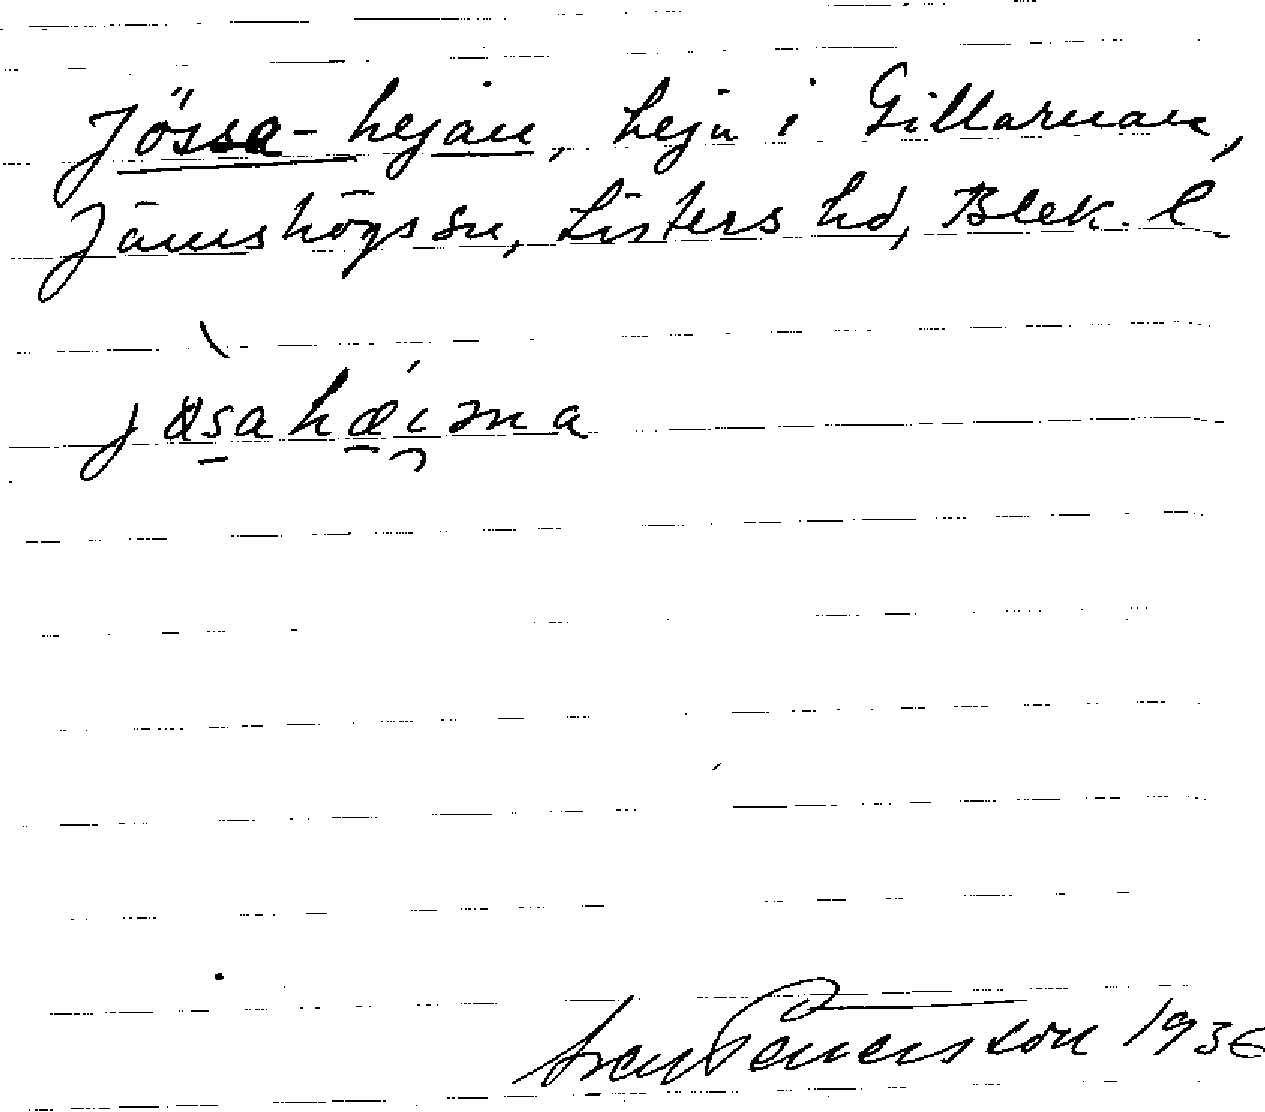 Jössa-hejan, heja i Gillarnan,
Jämshögs sn, Listers hd, Blek. l.
jøsahæina
Sven 1936